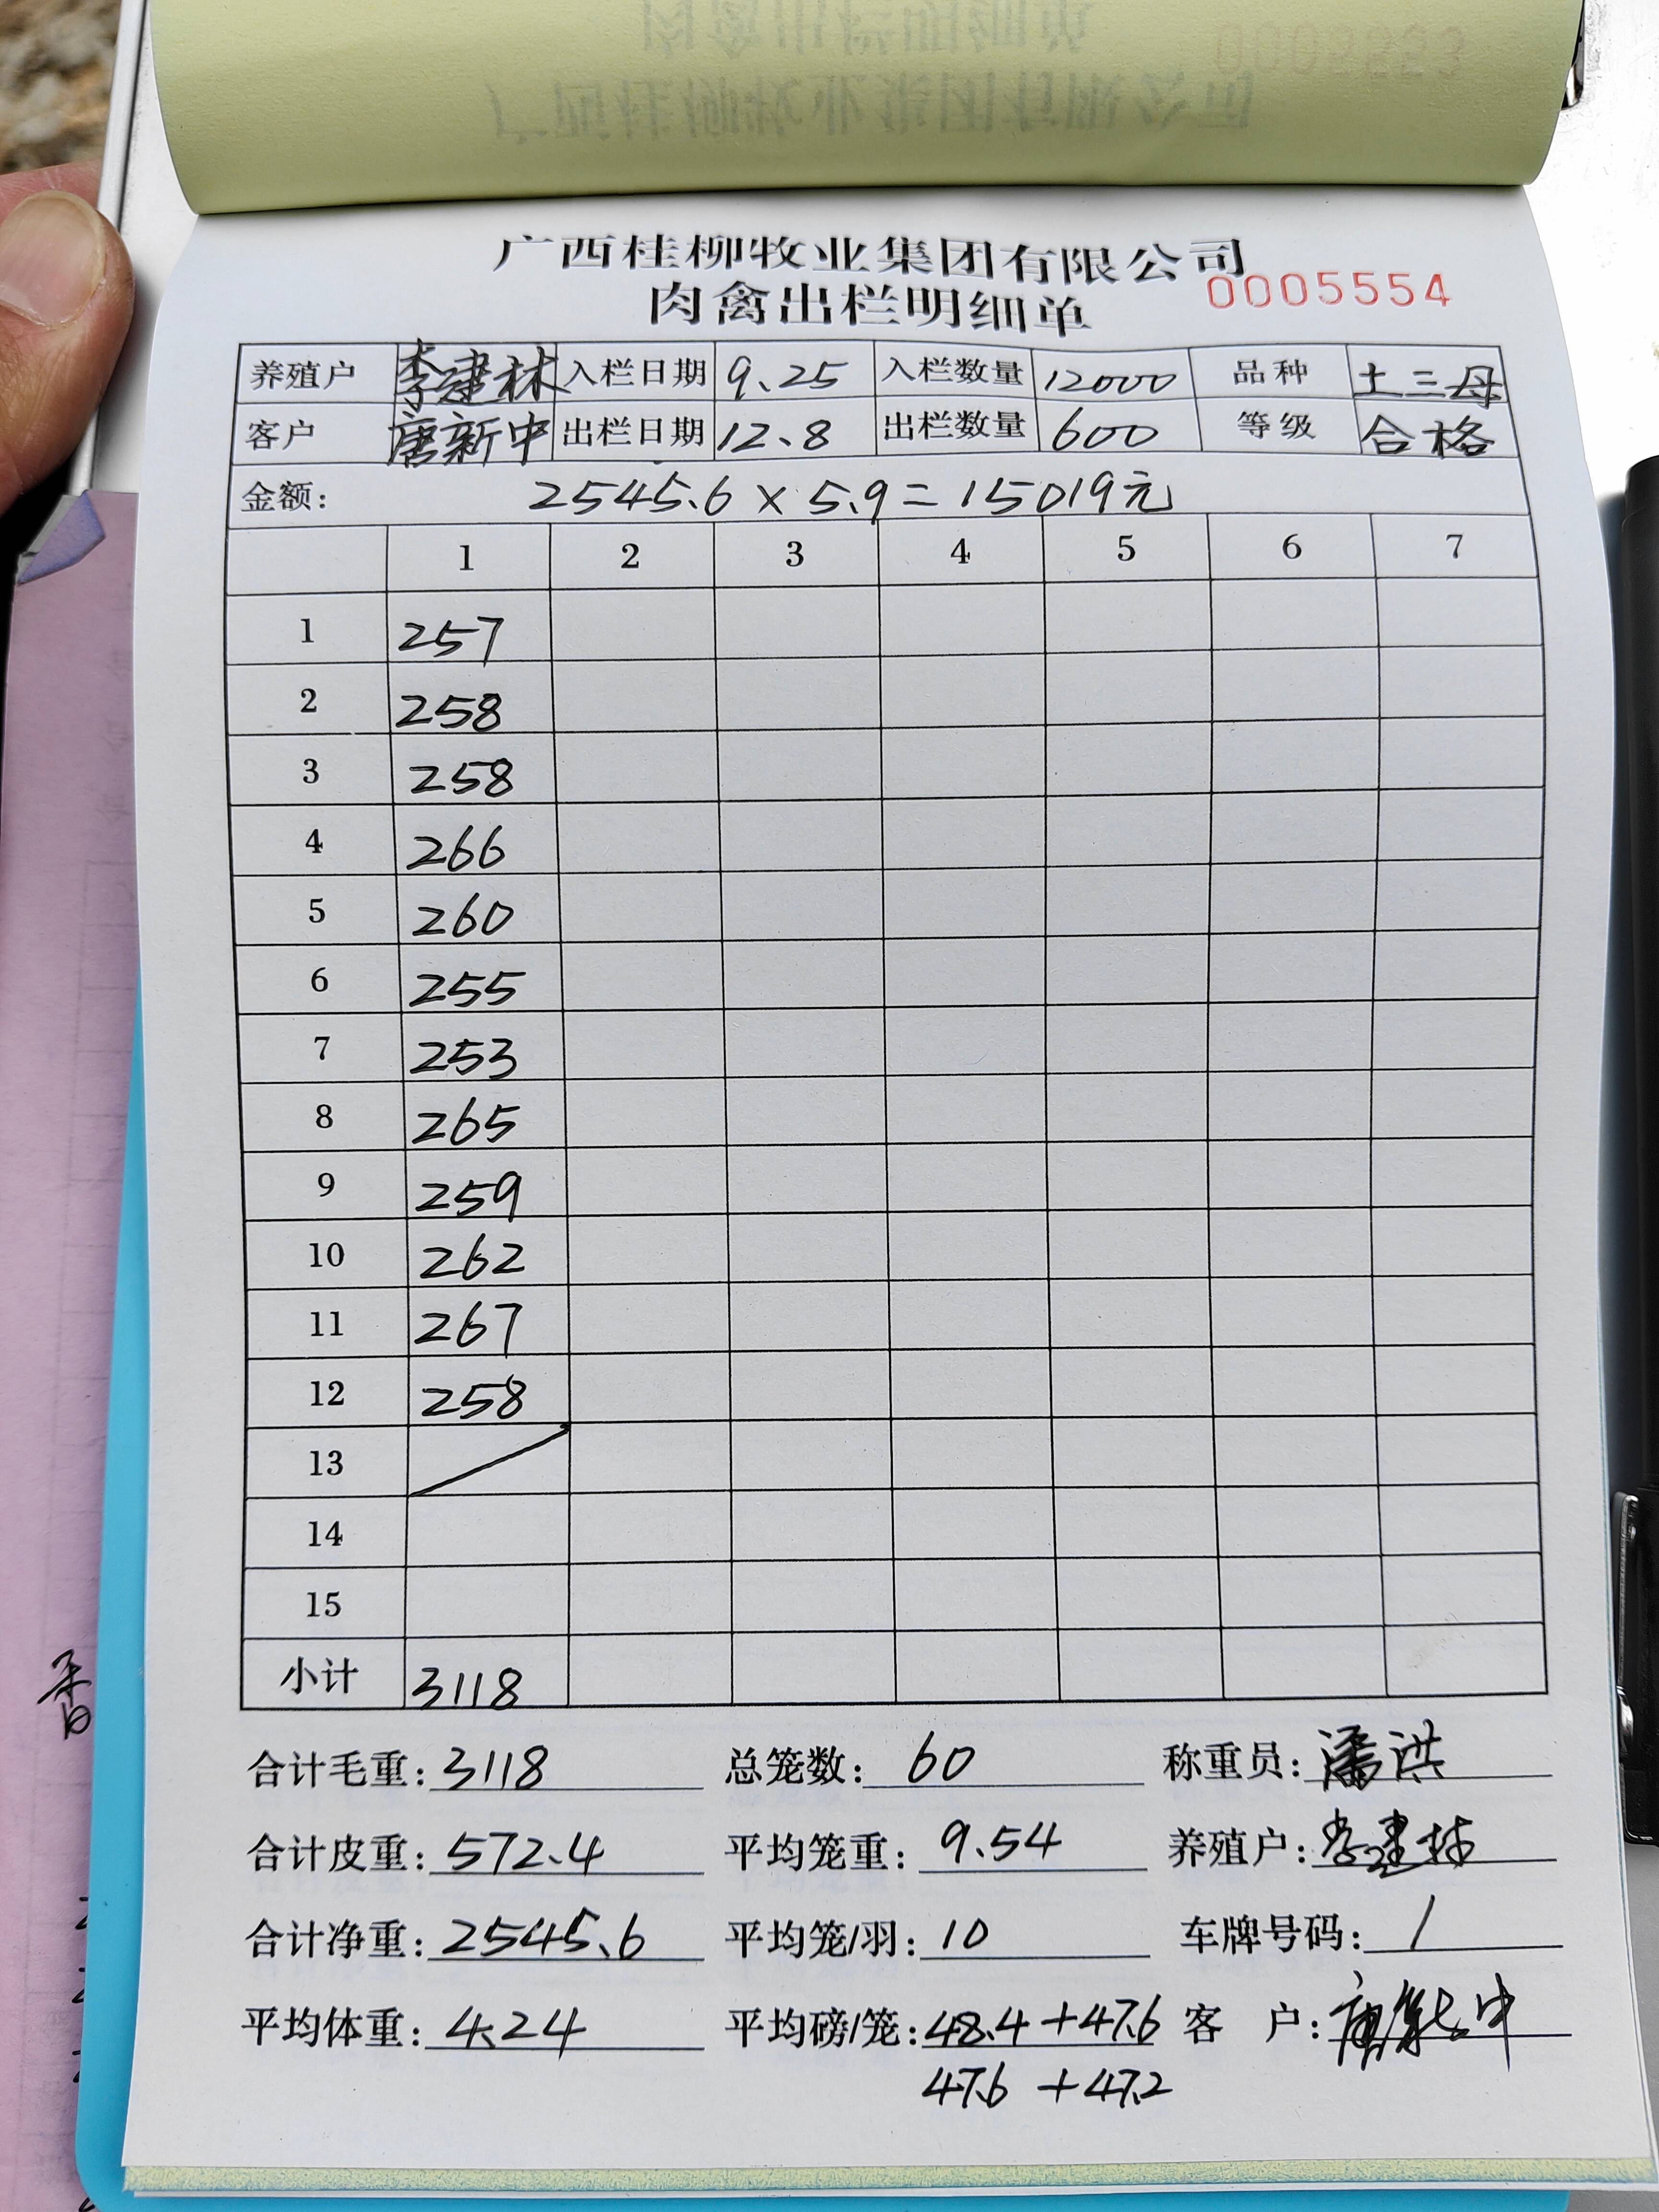 广西桂柳牧业集团有限公司
肉禽出栏明细单 0005554
养殖户 李建林 入栏日期 9.25 入栏数量 12000 品种 土三母
客户 唐新中 出栏日期 12.8 出栏数量 600 等级 合格
金额: 2545.6 × 5.9 = 15019元
1 2 3 4 5 6 7
1 257
2 258
3 258
4 266
5 260
6 255
7 253
8 265
9 259
10 262
11 267
12 258
13
14
15
小计 3118
合计毛重: 3118 总笼数: 60 称重员: 潘洪
合计皮重: 572.4 平均笼重: 9.54 养殖户: 李建林
合计净重: 2545.6 平均笼/羽: 10 车牌号码: /
平均体重: 4.24 平均磅/笼: 48.4 + 47.6 客 户: 唐新中
47.6 + 47.2